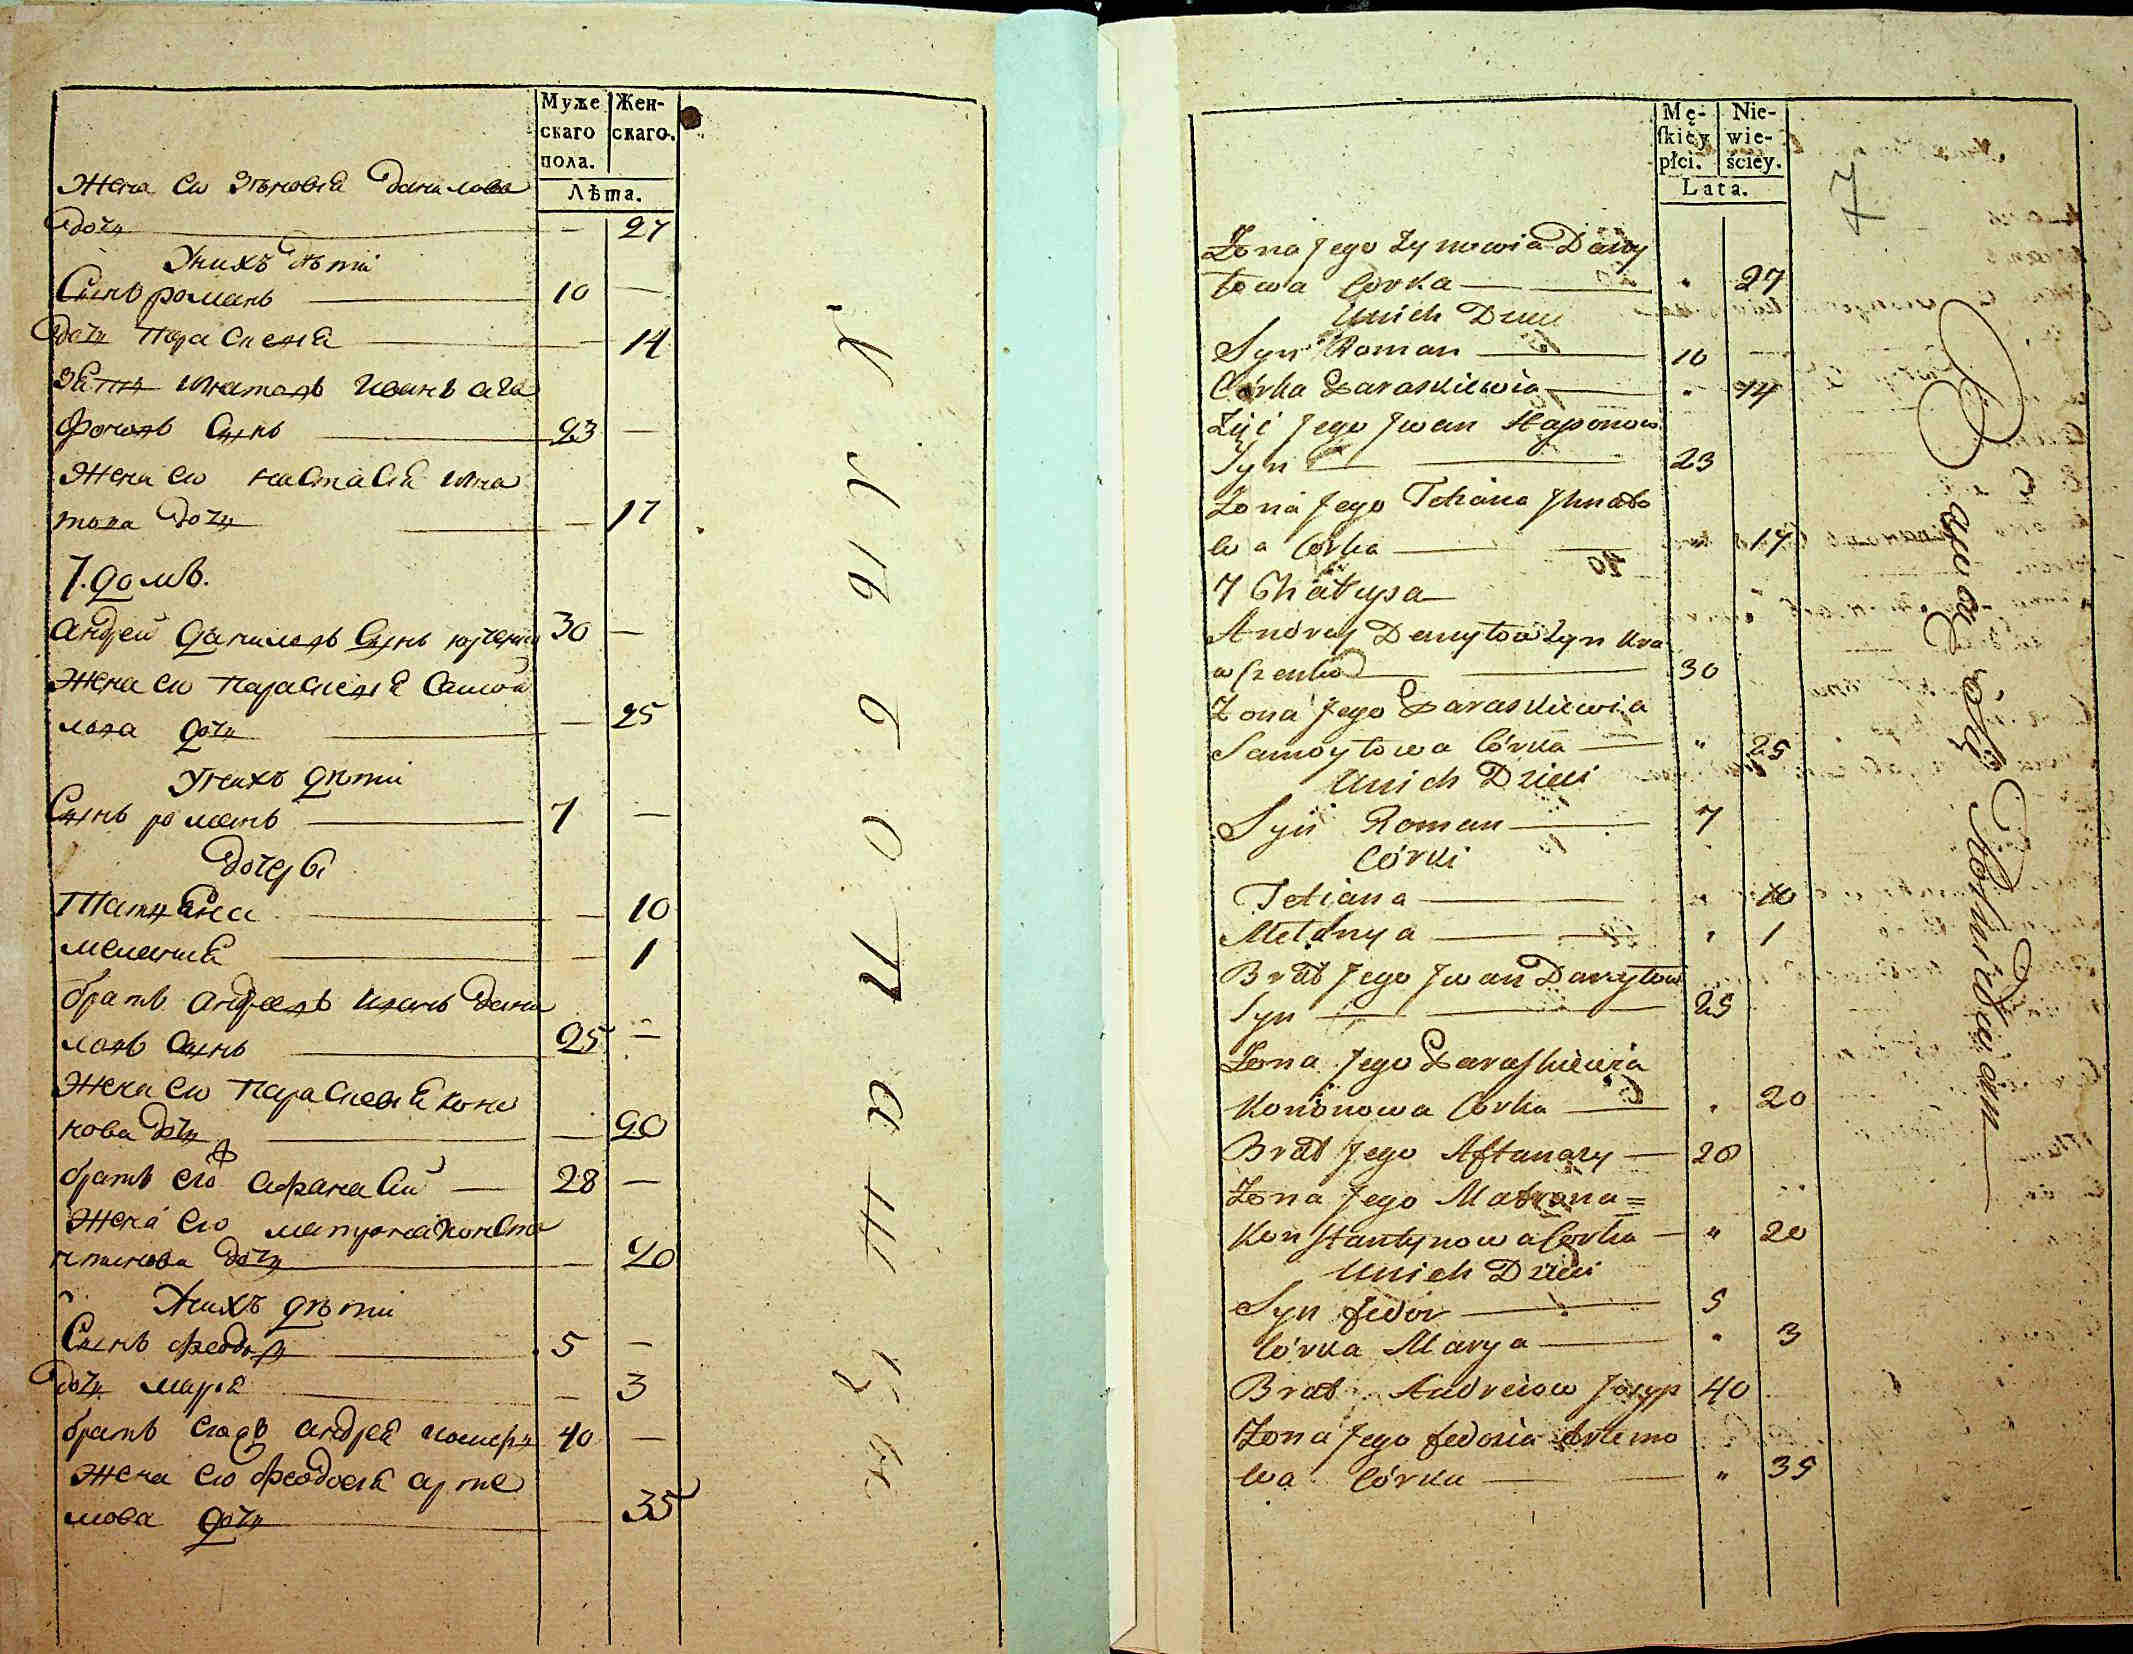 Муже
скаго
пола.
Жен-
скаго.
Лѣта.
Жена ево Зѣновѣя Данилова
дочь — — 27
У нихъ дѣти
Сынъ романъ — 10 —
дочь Параскевѣя — — 14
Зять Игнатовъ Иванъ ага
фоновъ Сынъ — 23 —
Жена ево настасѣя Игна
това дочь — — 17
7. домъ.
андрей даниловъ Сынъ 30 —
Жена ево Параскевѣя Самой
лова дочь — — 25
У нихъ дѣти
Сынъ романъ — 7 —
дочери
Татьяна — — 10
мелания — — 1
братъ андреевъ иванъ дани
ловъ Сынъ — 25 —
Жена ево Параскевѣя коно
нова дочь — — 20
братъ его афанасий — 28 —
Жена ево матрона конста
нтинова дочь — — 20
У нихъ дѣти
Сынъ феодоръ — 5 —
дочь марья — — 3
братъ андрея 40 —
Жена ево феодосѣя арте
мова дочь — — 35
Mę-
skiéy
płci.
Nie-
wie-
ściey.
Lata.
7
Żona jego Zynowia Dany
łowa Corka — " 27
U nich Dzieci
Syn Roman — 10 —
Córka Paraskiewia — " 14
Zięć jego Jwan Haponow
Syn — 23
Żona jego Tetiana Jhnato
wa Corka — " 17
7 Chałupa
Andrey Danyłow Syn Kra
wszenko — 30
Żona jego Paraskiewia
Samoyłowa Córka — " 25
U nich Dzieci
Syn Roman — 7
Córki
Tetiana — " 10
Mełanya — " 1
Brat jego Jwan Danyłow
Syn — 25
Żona jego Paraskiewia
Kononowa Corka — " 20
Brat jego Aftanazy — 28
Żona jego Matrona=
Konstantynowa Corka — " 20
U nich Dzieci
Syn fedor — 5
Córka Marya — " 3
Brat Andreiow Josyp 40
Żona jego fedosia Artemo
wa Córka — " 35